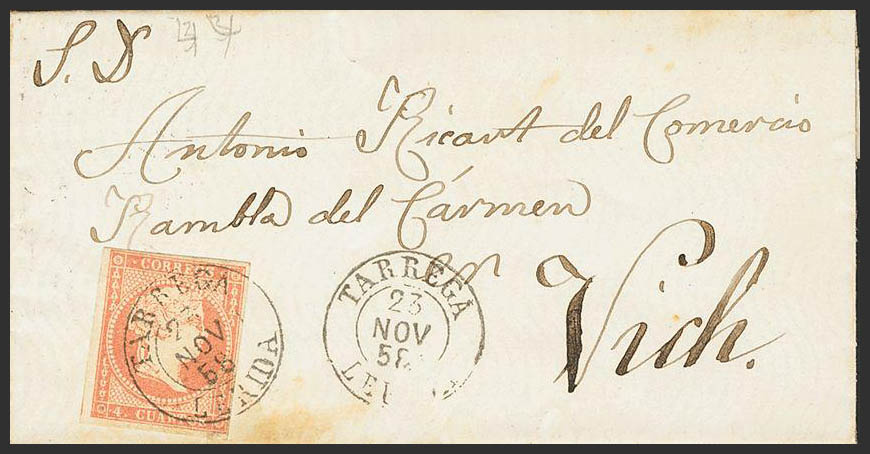 S. D
Antonio Ricart del Comercio
Rambla del Cármen
Vich.
TARREGA
23
NOV
58
LERIDA
TARREGA
23
NOV
58
CORREOS
4. CUA